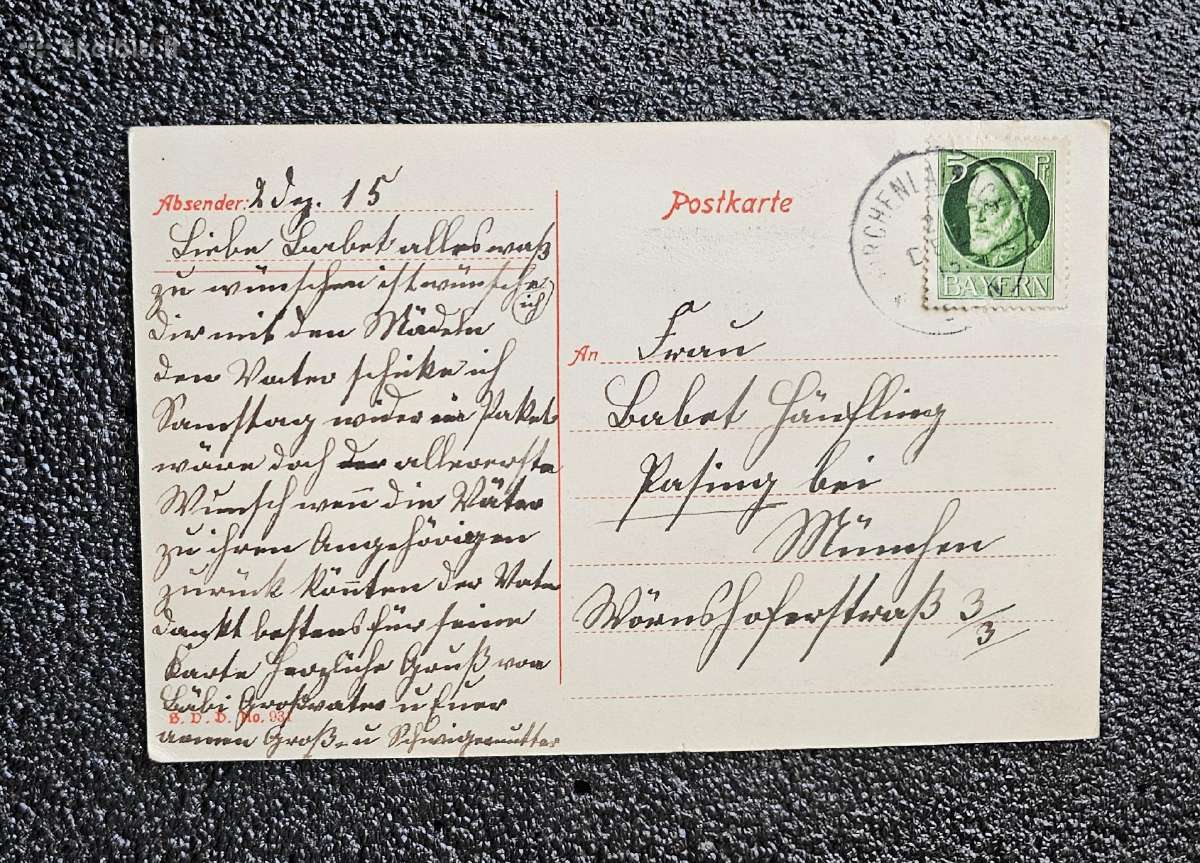 skelbiu.lt
Absender: 2 Dez. 15
Liebe Babet alles waß
zu wünschen ist wünsche
ich
Dir mit den Mädeln
den Vater schicke ich
Samstag wider ein Paket
wäre doch der allererste
Wunsch wen̄ die Väter
zu ihren Angehörigen
zurück kön̄ten der Vater
dankt bestens für seine
Karte Herzliche Gruß von
Bäbi Großvater u Euer
armen Groß- u Schwigermutter
B. D. D. No. 931
Postkarte
KIRCHENLA
5 Pf
BAYERN
An Frau
Babet Hänfling
Pasing bei
München
Wörnshoferstraß 3/3